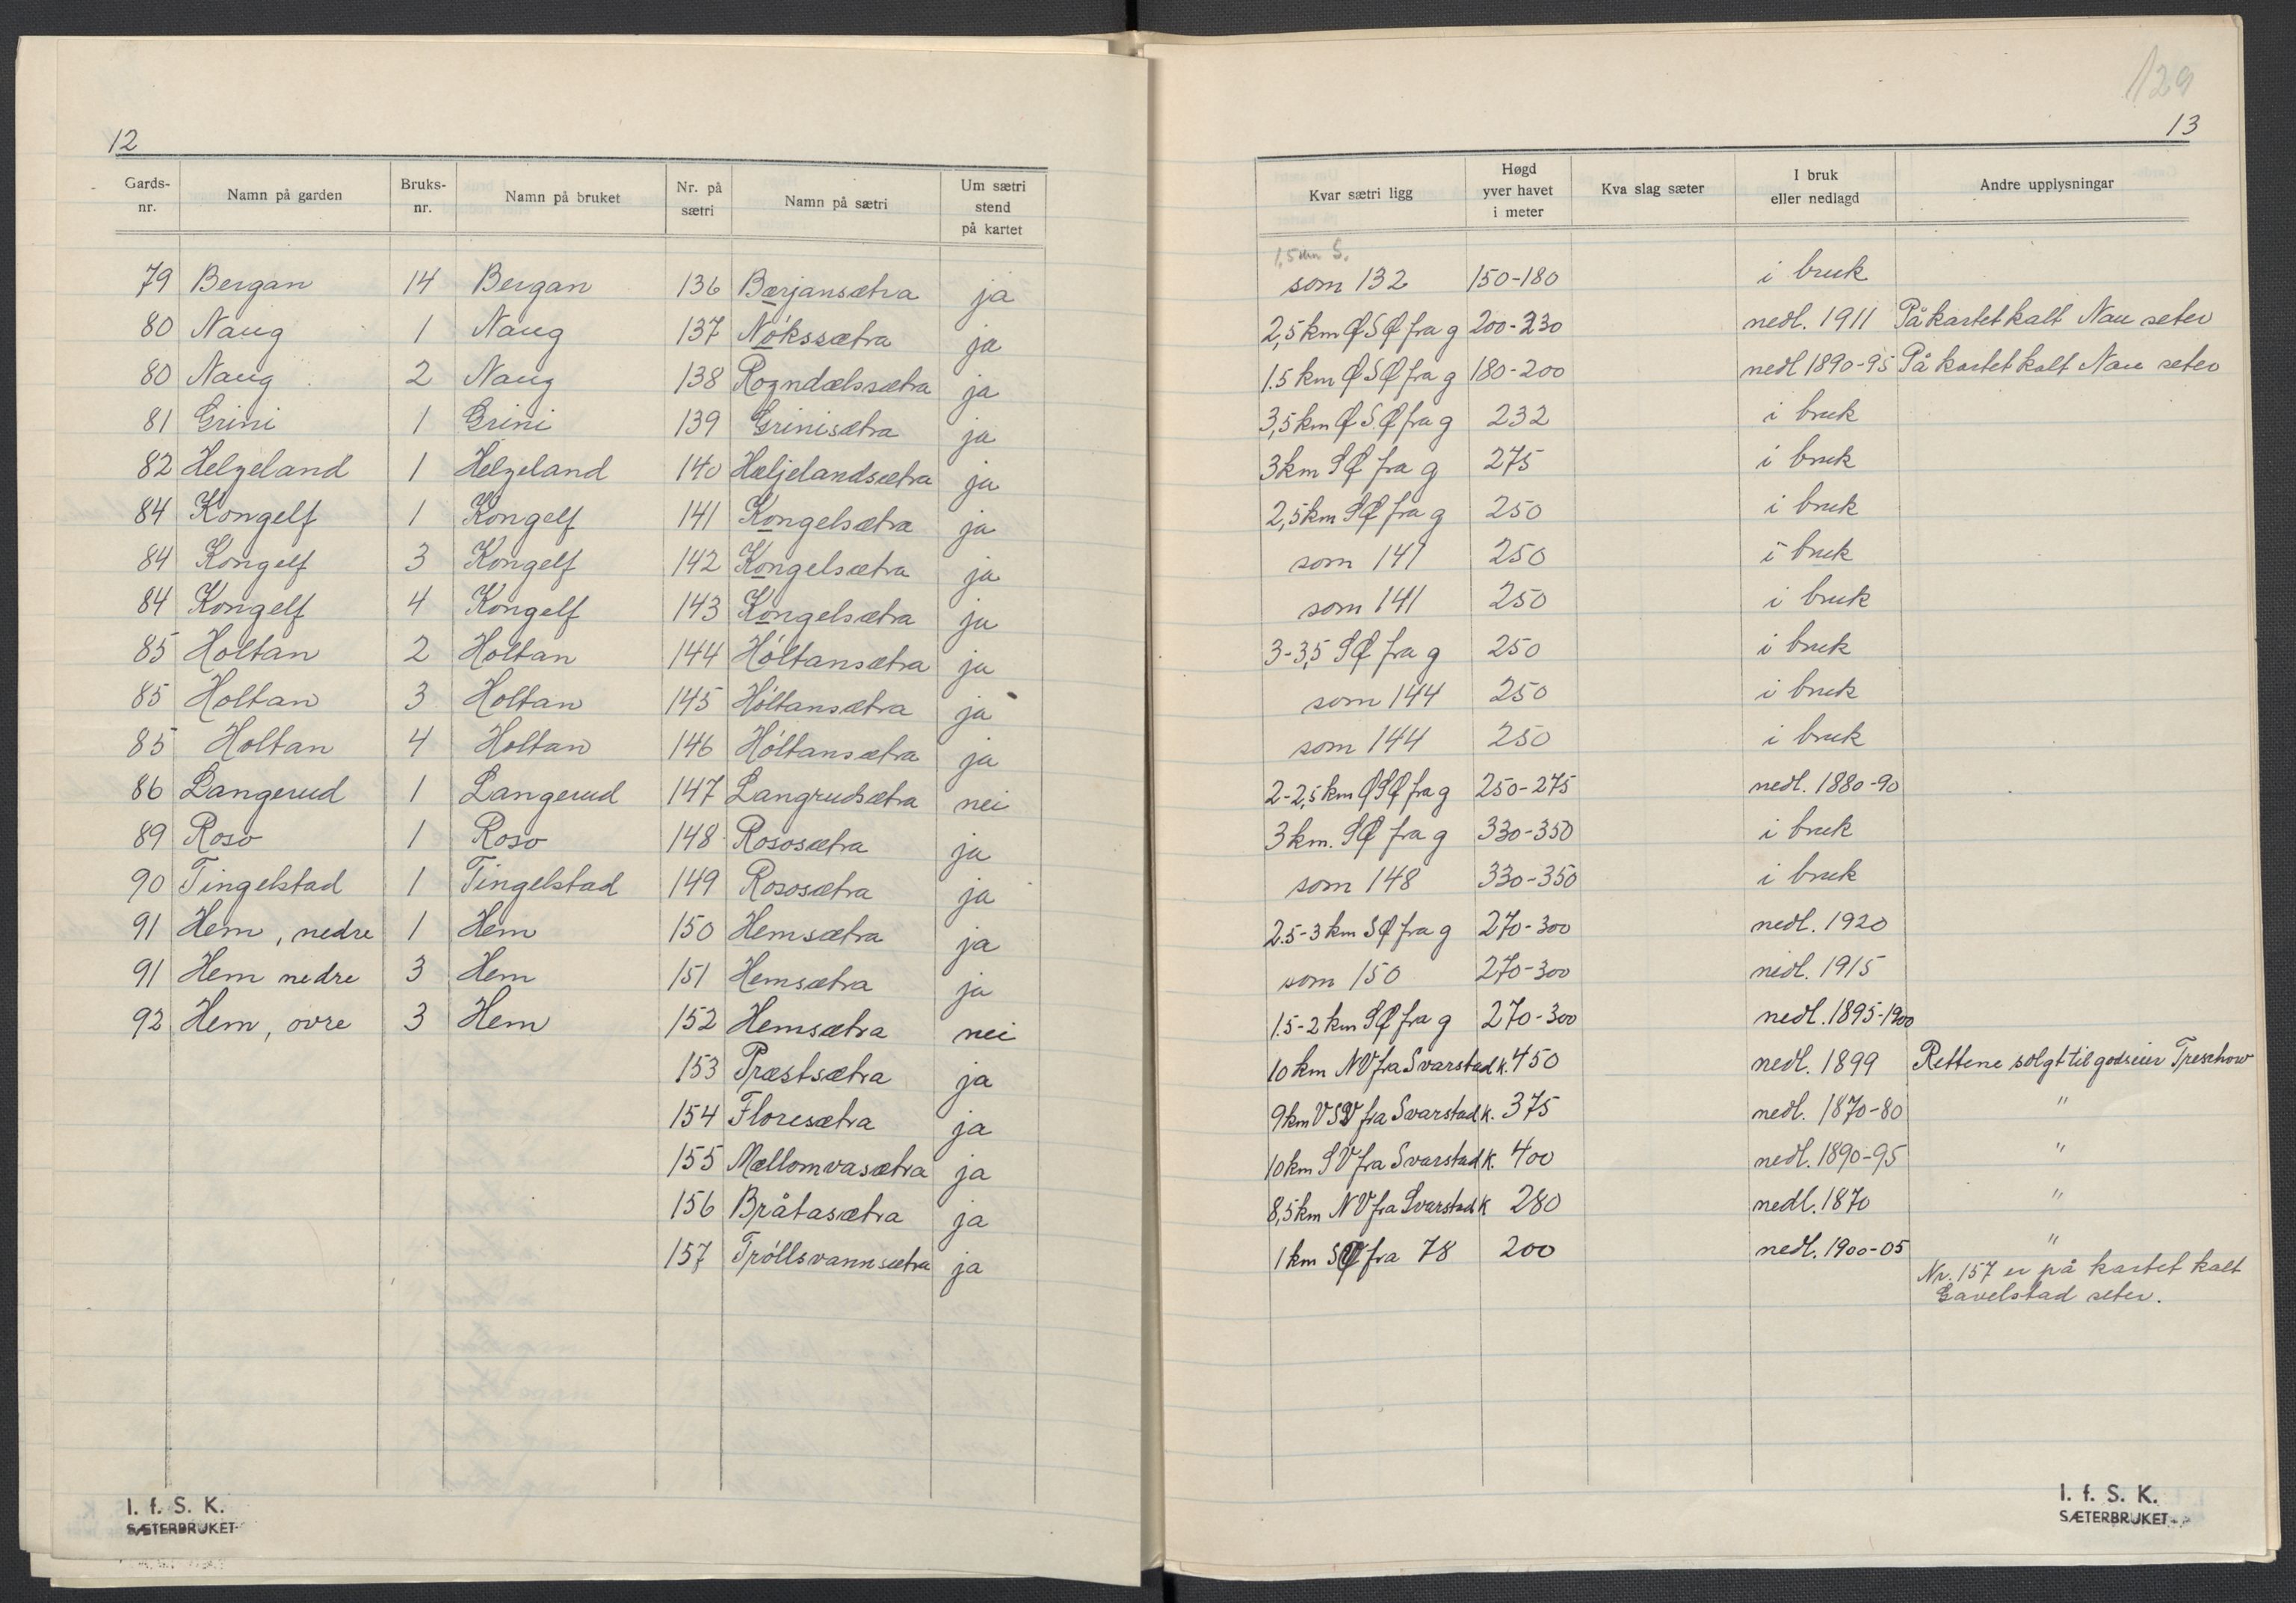 12
Gards-nr. | Namn på garden | Bruks-nr. | Namn på bruket | Nr. på sætri | Namn på sætri | Um sætri stend på kartet
79 Bergan 14 Bergan 136 Bærjansætra ja
80 Naug 1 Naug 137 Nókssætra ja
80 Naug 2 Naug 138 Rogndælssætra ja
81 Grini 1 Grini 139 Grinisætra ja
82 Helgeland 1 Helgeland 140 Hæljelandsætra ja
84 Kongelf 1 Kongelf 141 Kongelsætra ja
84 Kongelf 3 Kongelf 142 Kongelsætra ja
84 Kongelf 4 Kongelf 143 Kongelsætra ja
85 Holtan 2 Holtan 144 Hóltansætra ja
85 Holtan 3 Holtan 145 Hóltansætra ja
85 Holtan 4 Holtan 146 Hóltansætra ja
86 Langerud 1 Langerud 147 Langrudsætra nei
89 Roso 1 Roso 148 Rososætra ja
90 Tingelstad 1 Tingelstad 149 Rososætra ja
91 Hem, nedre 1 Hem 150 Hemsætra ja
91 Hem nedre 3 Hem 151 Hemsætra ja
92 Hem, ovre 3 Hem 152 Hemsætra nei
153 Præstsætra ja
154 Floresætra ja
155 Mællomvasætra ja
156 Bråtasætra ja
157 Tróllsvannsætra ja
I. f. S. K.
SÆTERBRUKET
129
13
Kvar sætri ligg | Høgd yver havet i meter | Kva slag sæter | I bruk eller nedlagd | Andre upplysningar
1,5 km S.
som 132 150-180 i bruk
2,5 km Ø S Ø fra g 200-230 nedl. 1911 På kartet kalt Nau seter
1.5 km Ø S Ø fra g 180-200 nedl 1890-95 På kartet kalt Nau seter
3,5 km Ø S.Ø fra g 232 i bruk
3 km S Ø fra g 275 i bruk
2,5 km S Ø fra g 250 i bruk
som 141 250 i bruk
som 141 250 i bruk
3-3,5 S Ø fra g 250 i bruk
som 144 250 i bruk
som 144 250 i bruk
2-2,5 km Ø S Ø fra g 250-275 nedl. 1880-90
3 km. S Ø fra g 330-350 i bruk
som 148 330-350 i bruk
2.5-3 km S Ø fra g 270-300 nedl. 1920
som 150 270-300 nedl. 1915
1.5-2 km S Ø fra g 270-300 nedl. 1895-1900
10 km N V fra Svarstad k. 450 nedl. 1899 Rettene solgt til godseier Treschow
9 km V S V fra Svarstad k. 375 nedl. 1870-80 "
10 km S V fra Svarstad k. 400 nedl. 1890-95 "
8,5 km N V fra Svarstad k 280 nedl. 1870 "
1 km S Ø fra 78 200 nedl. 1900-05 "
Nr. 157 er på kartet kalt
Gavelstad seter.
I. f. S. K.
SÆTERBRUKET